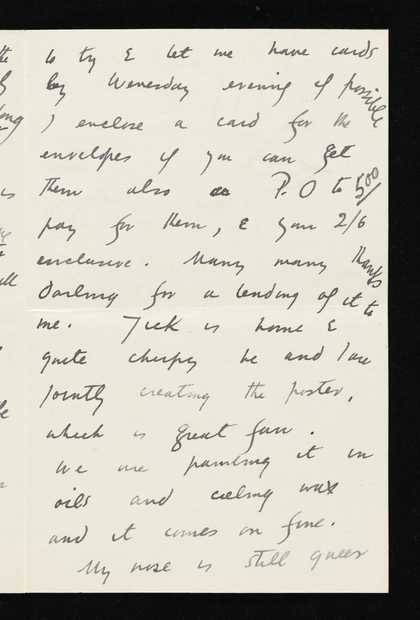 to try & let me have cards
by Wenesday evening if possible
I enclose a card for the
envelopes if you can get
them also P.O to 5/00
pay for them, & your 2/6
exclusive. Many many thanks
Darling for a lending of it to
me. Jick is home &
quite cheirpy he and I are
jointly creating the poster,
which is great fun.
We are painting it in
oils and ceiling wax
and it comes on fine.
My nose is still queer